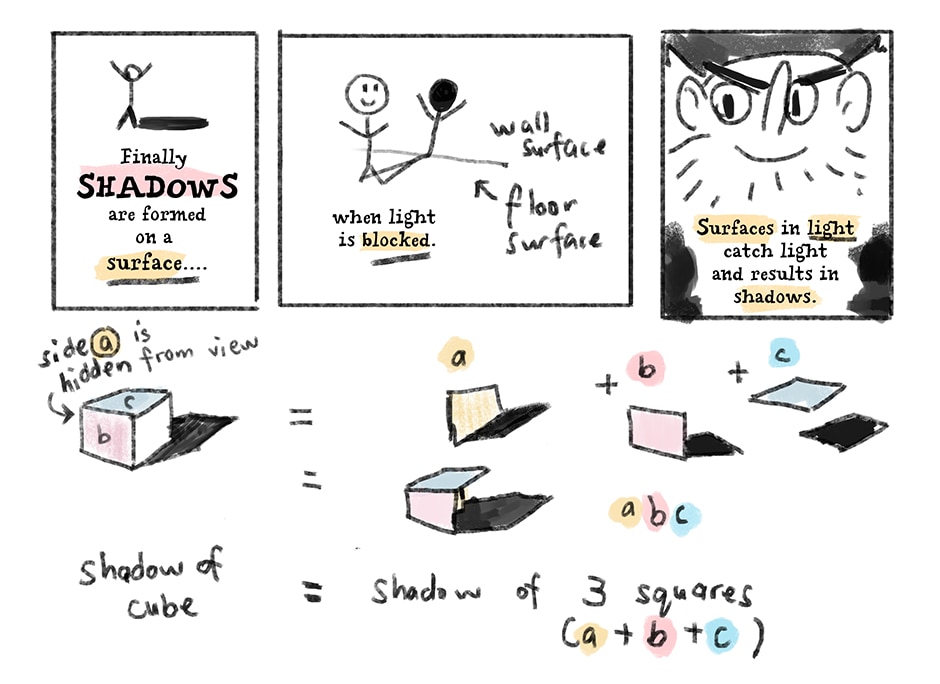 Finally
SHADOWS
are formed
on a
surface....
when light
is blocked.
wall
surface
floor
surface
Surfaces in light
catch light
and results in
shadows.
side a is
hidden from view
c
b
=
a
+ b
+ c
=
a b c
shadow of
cube
= shadow of 3 squares
(a + b + c)